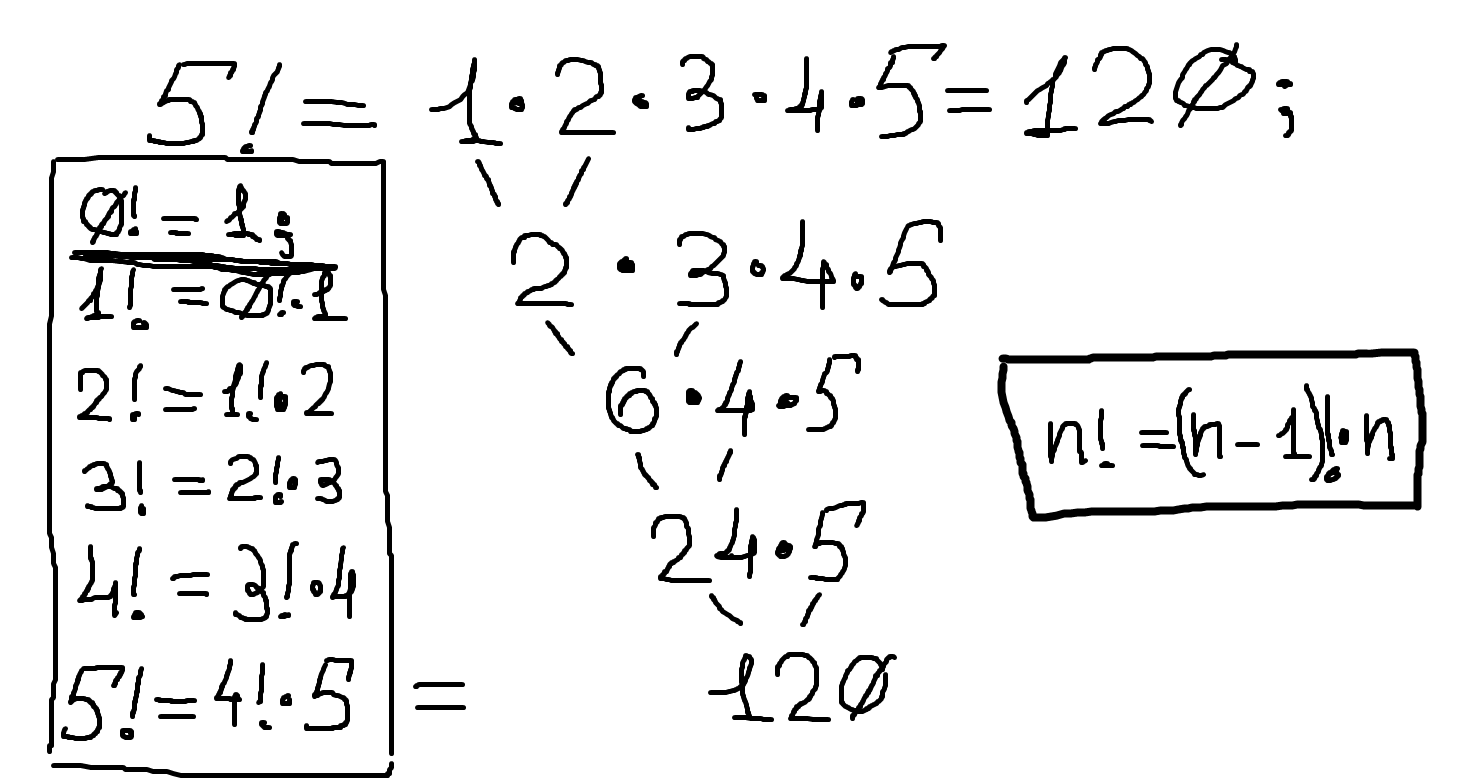 5! = 1·2·3·4·5 = 12Ø;
Ø! = 1;
1! = Ø!·1
2! = 1!·2
3! = 2!·3
4! = 3!·4
5! = 4!·5 =
2·3·4·5
6·4·5
24·5
12Ø
n! = (n-1)!·n